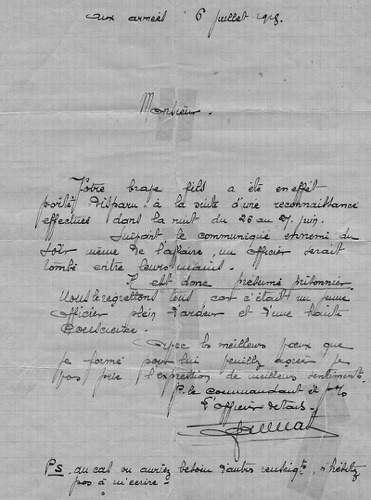 aux armées 6 juillet 1918.
Monsieur.
Votre brave fils a été en effet
porté disparu, à la suite d'une reconnaissance
effectuée dans la nuit du 26 au 27 juin.
Suivant le communiqué ennemi du
soir même de l'affaire, un officier serait
tombé entre leurs mains.
Il est donc présumé prisonnier.
Nous le regrettons tous car c'était un jeune
officier plein d'ardeur et d'une haute
conscience.
Avec les meilleurs vœux que
je forme pour lui veuillez agréer je
vous prie l'expression de meilleurs sentiments.
P. le commandant et p.
L'officier détails.
PS. au cas ou auriez besoin d'autres renseigts, n'hésitez
pas à m'écrire.